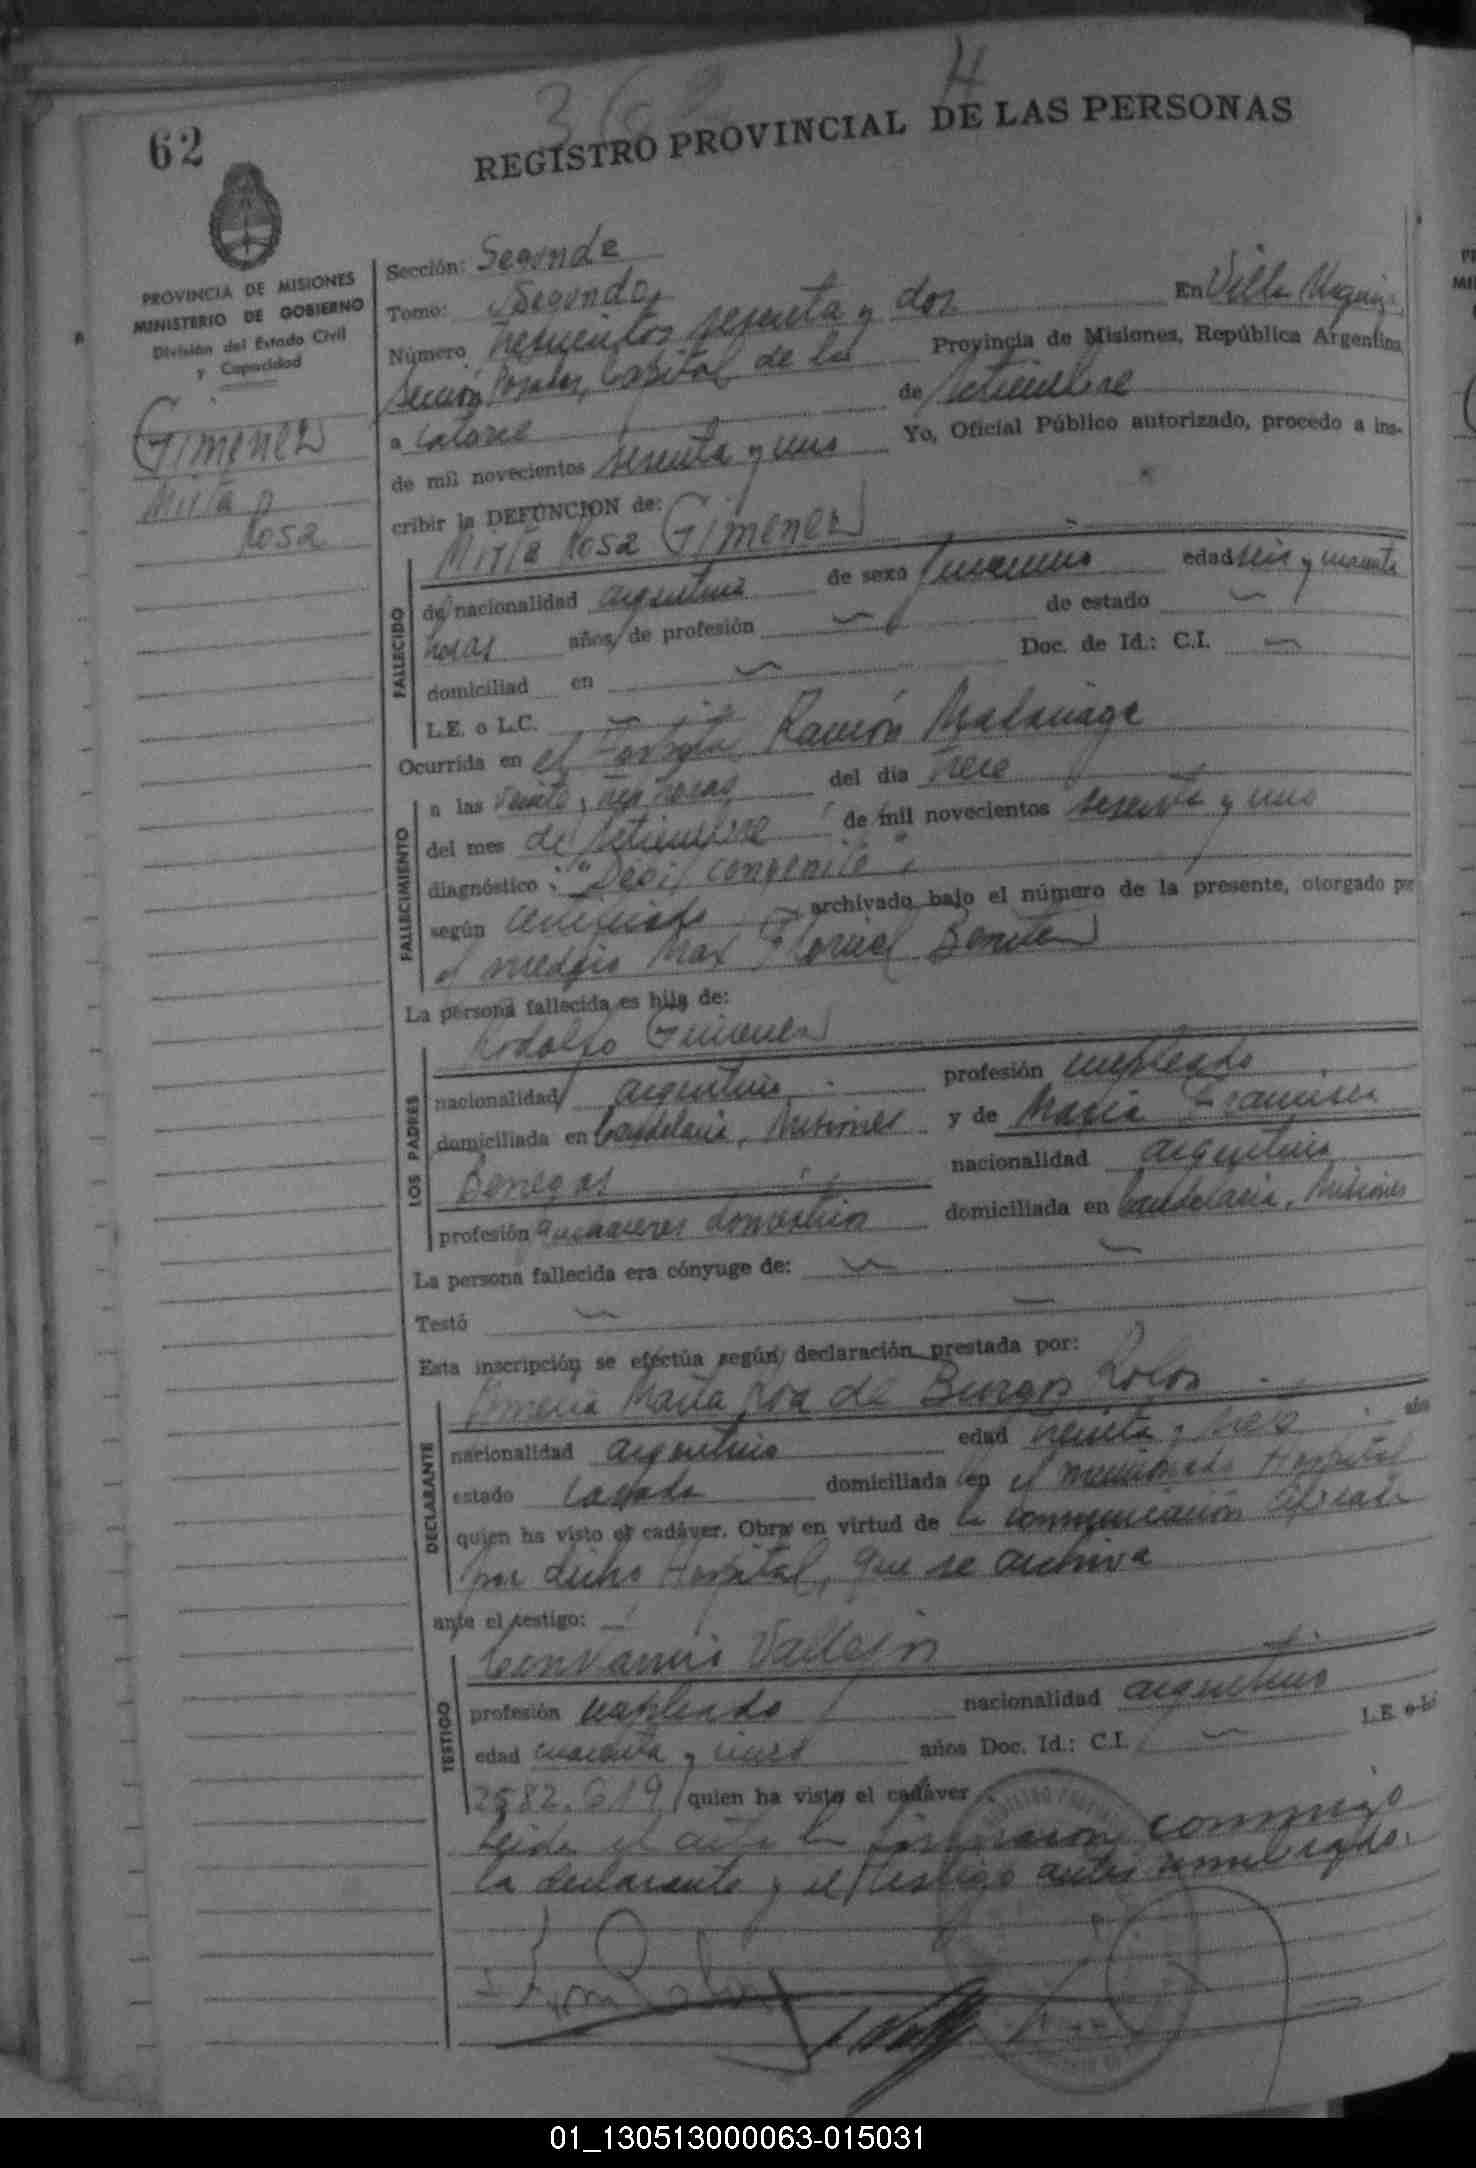 362 4
62
REGISTRO PROVINCIAL DE LAS PERSONAS
PROVINCIA DE MISIONES
MINISTERIO DE GOBIERNO
División del Estado Civil
y Capacidad
Gimenez
Mirta
Rosa
Sección: Segunda
Tomo: Segundo
Número trescientos sesenta y dos En Villa Urquiza
Sección Posadas, Capital de la Provincia de Misiones, República Argentina
a catorce de setiembre
de mil novecientos sesenta y uno Yo, Oficial Público autorizado, procedo a ins-
cribir la DEFUNCION de:
Mirta Rosa Gimenez
FALLECIDO
de nacionalidad argentina de sexo femenino edad seis y
horas años, de profesión de estado
domiciliad en Doc. de Id.: C.I.
L.E. o L.C.
Ocurrida en el Hospital Ramón Madariaga
FALLECIMIENTO
a las veinte y tres horas del día trece
del mes de setiembre de mil novecientos sesenta y uno
diagnóstico: "Debil congenito"
según certificado archivado bajo el número de la presente, otorgado por
el medico Max Benitez
La persona fallecida es hija de:
Rodolfo Gimenez
LOS PADRES
nacionalidad argentino profesión empleado
domiciliada en Candelaria, Misiones y de Maria Francisca
Benegas nacionalidad argentina
profesión quehaceres domesticos domiciliada en Candelaria, Misiones
La persona fallecida era cónyuge de:
Testó
Esta inscripción se efectúa según declaración prestada por:
Maria Roa de Burgos Rolon
DECLARANTE
nacionalidad argentina edad treinta y tres años
estado casada domiciliada en el mencionado Hospital
quien ha visto el cadáver. Obra en virtud de la comunicación
por dicho Hospital, que se archiva
ante el testigo:
Constancio Vallejos
TESTIGO
profesión empleado nacionalidad argentino
edad cuarenta y cinco años Doc. Id.: C.I. L.E. o
2582.619 quien ha visto el cadáver
Leida el acta la firmaron conmigo
la declarante y el testigo antes nombrado.
01_130513000063-015031